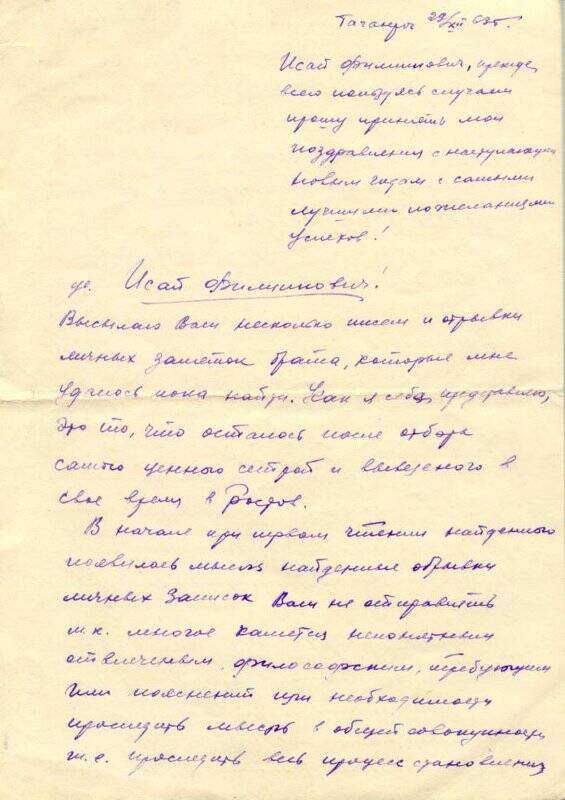 Таганрог 29/XII 67г.
Исай Филиппович, прежде
всего пользуясь случаем
прошу принять мои
поздравления с наступающим
новым годом с самыми
лучшими пожеланиями
успехов!
ув. Исай Филиппович!
Высылаю Вам несколько писем и отрывки
личных заметок брата, которые мне
удалось пока найти. Как я себе представляю,
это то, что осталось после отбора
самого ценного сестрой и вывезеного в
свое время в Ростов.
В начале при первом чтении найденного
появилась мысль найденные обрывки
личных записок Вам не отправлять
т.к. многое кажется непонятным
отвлеченным, философским, требующим
или пояснений при необходимости
проследить мысль в общей совокупности
т.е. проследить весь процесс становления